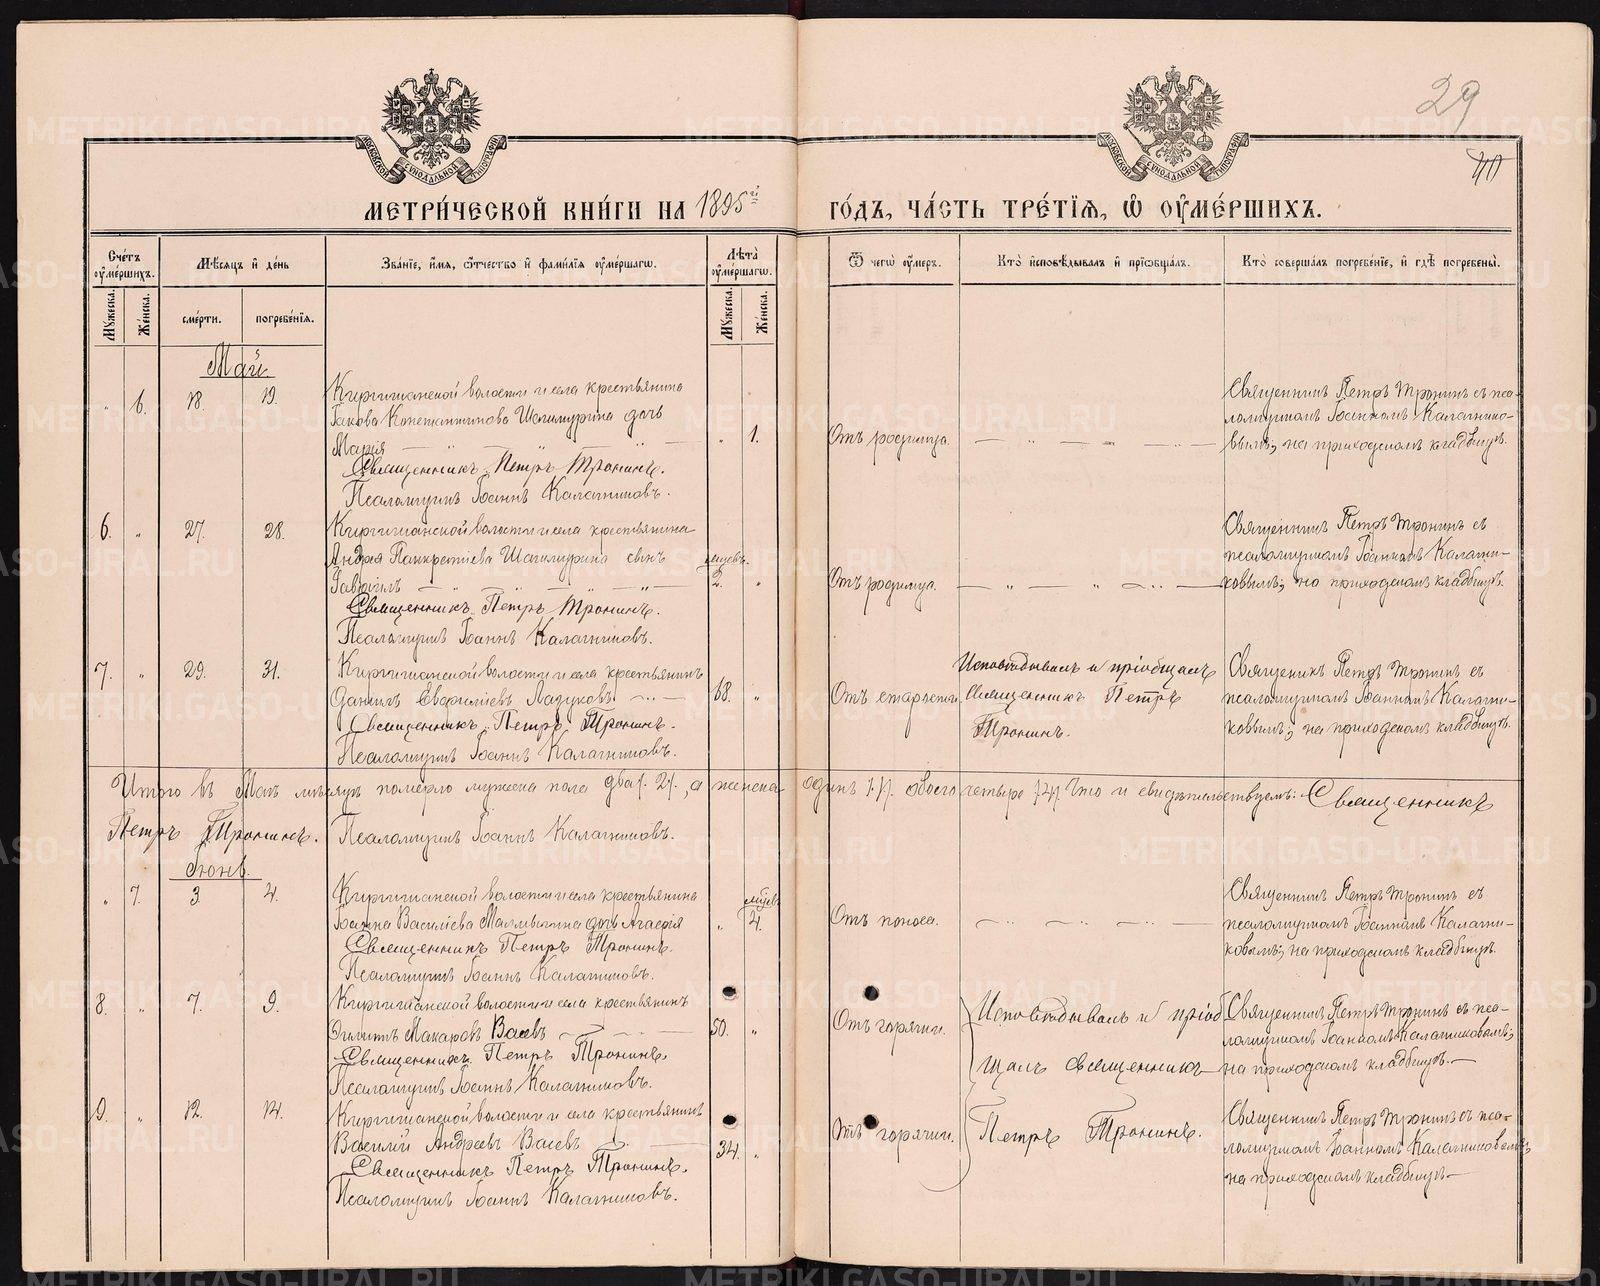 29
40
МОСКОВСКОЙ СѴНОДАЛЬНОЙ ТИПОГРАФІИ
МОСКОВСКОЙ СѴНОДАЛЬНОЙ ТИПОГРАФІИ
МЕТРИ́ЧЕСКОЙ КНИ́ГИ НА 1895й ГО́ДЪ, ЧА́СТЬ ТРЕ́ТІѦ, Ѡ҆ ОУ҆МЕ́РШИХЪ.
Сче́тъ оу҆ме́ршихъ.
Мѣ́сяцъ и҆ де́нь
Зва́ніе, и҆́мѧ, ѻ҆́тчество и҆ фами́лія оу҆ме́ршагѡ.
Лѣ́та оу҆ме́ршагѡ.
Ѿ чегѡ̀ оу҆́меръ.
Кто̀ и҆сповѣ́дывалъ и҆ прїѡбща́лъ.
Кто̀ соверша́лъ погребе́ніе, и҆ гдѣ̀ погребены̀.
Мꙋ́жеска.
Же́нска.
сме́рти.
погребе́нія.
Мꙋ́жеска.
Же́нска.
Май.
„ 6. 18. 19. Киргишанской волости и села крестьянина
Іакова Константинова Шашмурина дочь
Марія „ 1. Отъ родимца.
Священникъ Петръ Тронинъ.
Псаломщикъ Іоаннъ Калашниковъ.
Священникъ Петръ Тронинъ съ пса-
ломщикомъ Іоанномъ Калашнико-
вымъ, на приходскомъ кладбищѣ.
6. „ 27. 28. Киргишанской волости и села крестьянина
Андрея Панкратіева Шашмурина сынъ
Гавріилъ мѣсяц. 2. „ Отъ родимца.
Священникъ Петръ Тронинъ.
Псаломщикъ Іоаннъ Калашниковъ.
Священникъ Петръ Тронинъ съ
псаломщикомъ Іоанномъ Калашни-
ковымъ, на приходскомъ кладбищѣ.
7. „ 29. 31. Киргишанской волости и села крестьянинъ
Даніилъ Евфиміевъ 68. „ Отъ старости.
Священникъ Петръ Тронинъ.
Псаломщикъ Іоаннъ Калашниковъ.
Исповѣдывалъ и пріобщалъ
Священникъ Петръ
Тронинъ.
Священикъ Петръ Тронинъ съ
псаломщикомъ Іоанномъ Калашни-
ковымъ, на приходскомъ кладбищѣ.
Итого въ Маѣ мѣсяцѣ померло мужска пола два /2/, а женска одинъ /1/. обоего четыре /4/. Что и свидѣтельствуемъ: Священникъ
Петръ Тронинъ. Псаломщикъ Іоаннъ Калашниковъ.
Іюнь.
„ 7. 3. 4. Киргишанской волости и села крестьянина
Іоанна Василіева дочь Агаѳія „ мѣсяц. 4. Отъ поноса.
Священникъ Петръ Тронинъ.
Псаломщикъ Іоаннъ Калашниковъ.
Священникъ Петръ Тронинъ съ
псаломщикомъ Іоанномъ Калашни-
ковымъ, на приходскомъ кладбищѣ.
8. „ 7. 9. Киргишанской волости и села крестьянинъ
Макаровъ Васевъ 50. „ Отъ горячки.
Священникъ Петръ Тронинъ.
Псаломщикъ Іоаннъ Калашниковъ.
Исповѣдывалъ и пріоб
щалъ священникъ
Петръ Тронинъ.
Священникъ Петръ Тронинъ съ пса-
ломщикомъ Іоанномъ Калашниковымъ,
на приходскомъ кладбищѣ.
9. „ 12. 14. Киргишанской волости и села крестьянинъ
Василій Андреевъ Васевъ 34. „ Отъ горячки.
Священникъ Петръ Тронинъ.
Псаломщикъ Іоаннъ Калашниковъ.
Священникъ Петръ Тронинъ съ пса-
ломщикомъ Іоанномъ Калашниковымъ,
на приходскомъ кладбищѣ.
METRIKI.GASO-URAL.RU